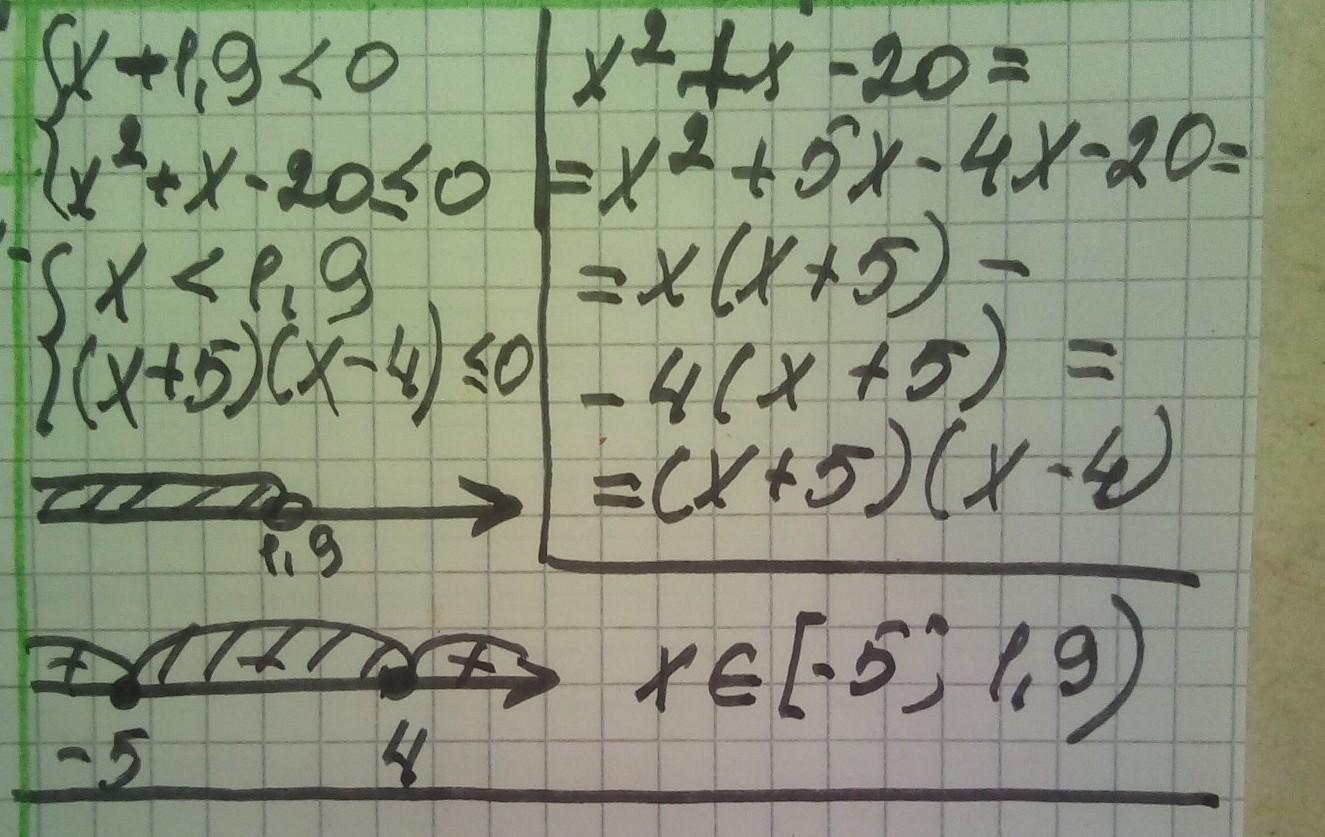 x + 1,9 < 0
x² + x - 20 ≤ 0
x < 1,9
(x+5)(x-4) ≤ 0
1,9
+ - +
-5 4
x² + x - 20 =
= x² + 5x - 4x - 20 =
= x(x+5) -
- 4(x+5) =
= (x+5)(x-4)
x ∈ [-5; 1,9)